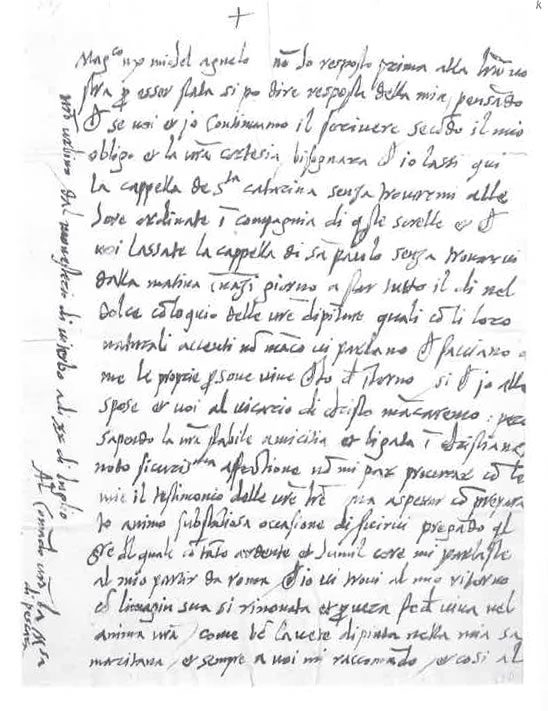 +
k
Mag.co m. michel agnelo nō ho resposto prima alla lr̄a vo
stra p esser stata si po dire resposta della mia, pensādo
ch se voi et io continuamo il scrivere secōdo il mio
obligo et la vr̄a cortesia, bisognara ch io lassi qui
la cappella de S.ta catarina senza trovarmi alle
hore ordinate ī compagnia di qste sorelle et ch
voi lassate la cappella di sā paulo senza trovarvi
dalla matina ināzi giorno a star tutto il di nel
dolce colloquio delle vr̄e dipinture quali cō li loro
naturali accenti nō māco vi parlano ch facciano a
me le proprie psone vive ch ho d ītorno si ch io alle
spose et voi al vicario di cristo mācaremo: però
sapendo la vr̄a stabile amicitia et ligata ī cristiano
nodo sicuriss.ma affectione nō mi par procurar cō le
mie il testimonio delle vr̄e lr̄e ma aspettar cō prepara
to animo substātiosa occasione di servirvi pregādo ql
sre dl quale cō tāto ardente et humil core mi parlaste
al mio partir da roma ch io vi trovi al mio ritorno
cō limagin sua si rinovata et p vera fede viva nel
anima vr̄a, come bē l'avete dipinta nella mia sa
maritana, et sempre a voi mi raccomādo, et cosi al
vrō urbino dal monesterio di viterbo a di xx di luglio
Al comādo vrō la M.sa
di pescara